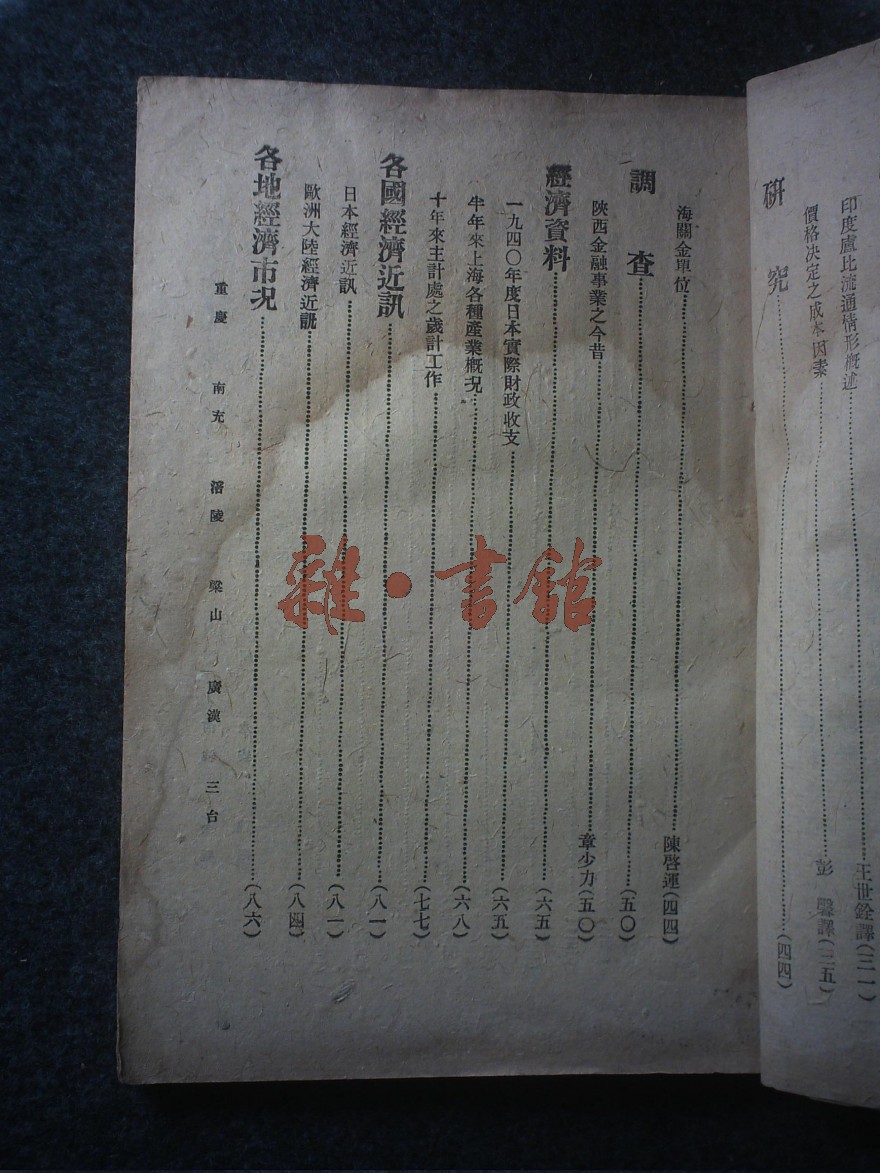 印度盧比流通情形概述……王世銓譯(三一)
價格決定之成本因素……彭　譯(三五)
研究……(四四)
海關金單位……陳啓運(四四)
調查……(五〇)
陝西金融事業之今昔……章少力(五〇)
經濟資料……(六五)
一九四〇年度日本實際財政收支……(六五)
半年來上海各種產業概况……(六八)
十年來主計處之歲計工作……(七七)
各國經濟近訊……(八一)
日本經濟近訊……(八一)
歐洲大陸經濟近訊……(八四)
各地經濟市况……(八六)
重慶　南充　涪陵　梁山　廣漢　三台
雜·書館